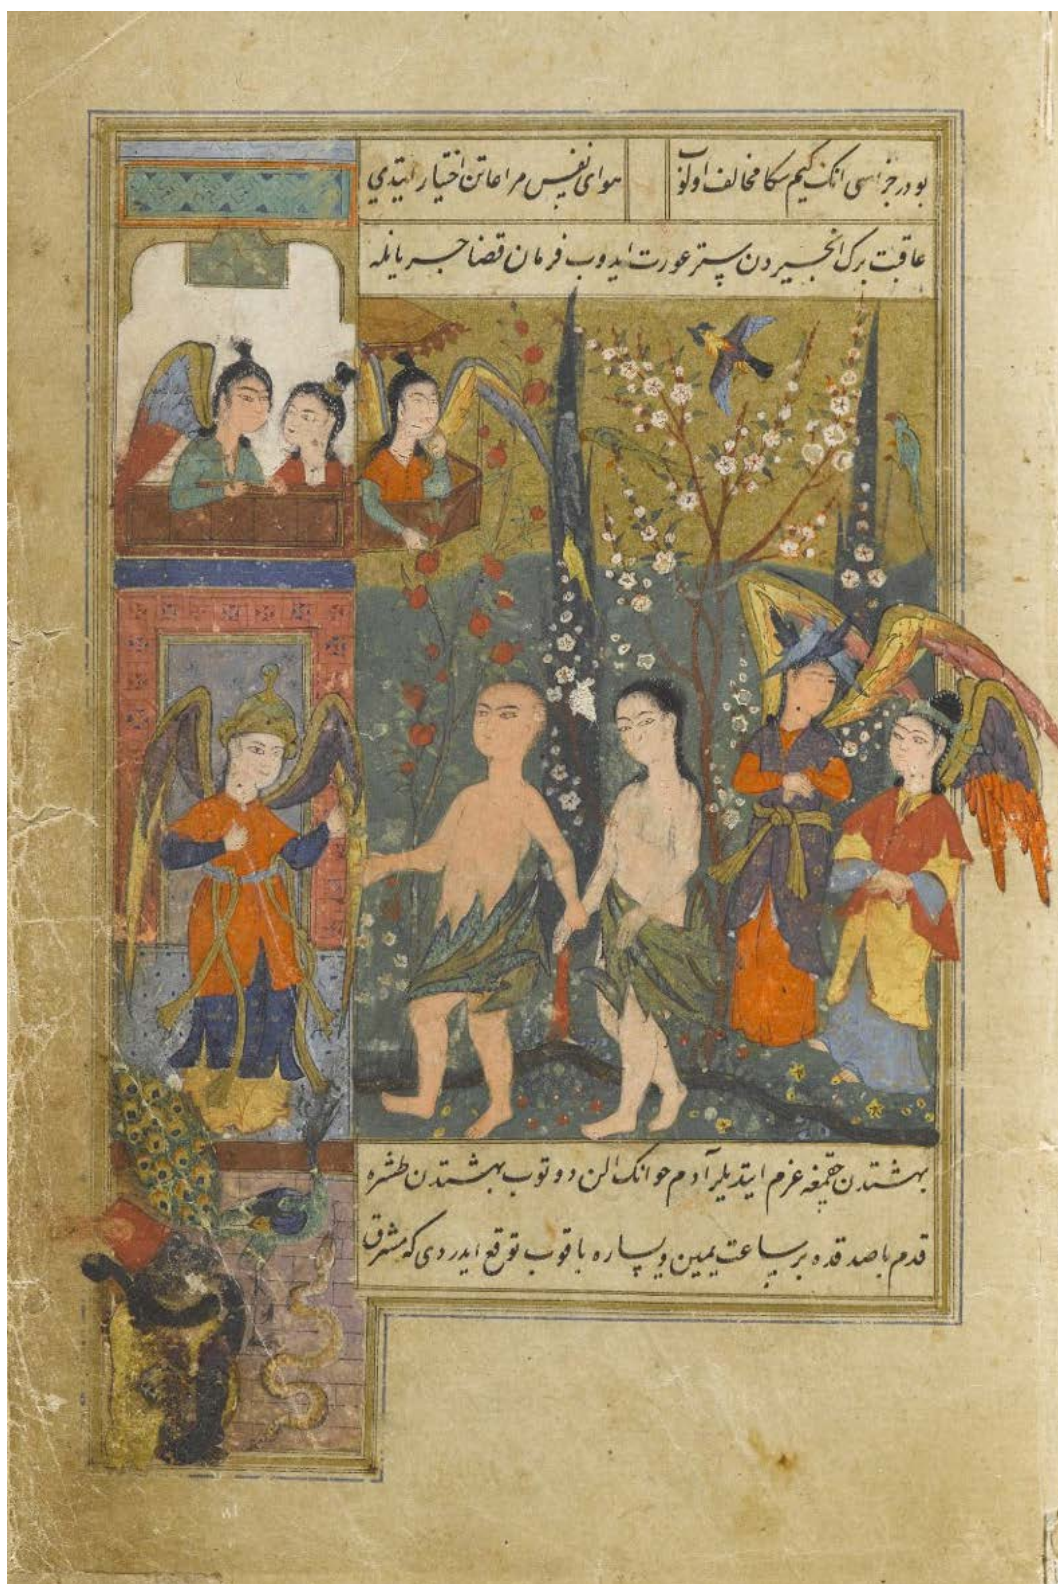 بودر جزاسی انک کیم سکا مخالف اولوب هوای نفس مراعاتن اختیار ایتدی
عاقبت برک انجیردن ستر عورت ایدوب فرمان قضا جریانله
بهشتدن چقمغه عزم ایتدیلر آدم حوانک الن دوتوب بهشتدن طشره
قدم باصدقده بر ساعت یمین و یساره باقوب توقع ایدردی که مشرق